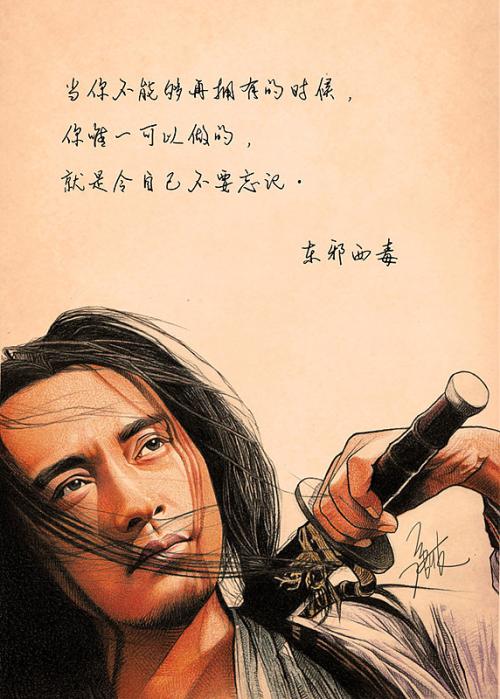 当你不能够再拥有的时候，
你唯一可以做的，
就是令自己不要忘记。
东邪西毒